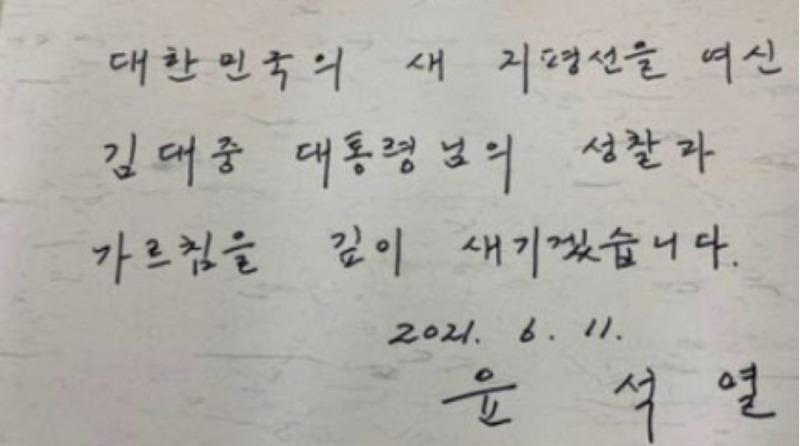 대한민국의 새 지평선을 여신
김대중 대통령님의 성찰과
가르침을 깊이 새기겠습니다.
2021. 6. 11.
윤 석 열